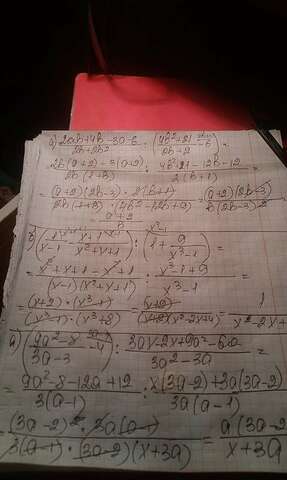 а) 2ab+4b-3a-6 / 2b+2b² : (4b²+21 / 2b+2 - 6) =
2b(a+2)-3(a+2) / 2b(1+b) : 4b²+21-12b-12 / 2(b+1) =
= (a+2)(2b-3) · 2(b+1) / 2b(1+b) · (4b²-12b+9) = (a+2)(2b-3) / b(2b-3)²
a+2 / b
б) (1 / x-1 - x+1 / x²+x+1) : (1 + 9 / x³-1) =
= x²+x+1-x²+1 / (x-1)(x²+x+1) : x³-1+9 / x³-1 =
= (x+2)(x³-1) / (x³-1)(x³+8) = (x+2) / (x+2)(x²-2x+4) = 1 / x²-2x+
(9a²-8 / 3a-3 - 4) : 3ax-2x+9a²-6a / 3a²-3a =
= 9a²-8-12a+12 / 3(a-1) : x(3a-2)+3a(3a-2) / 3a(a-1)
(3a-2)² · 3a(a-1) / 3(a-1) · (3a-2)(x+3a) = a(3a-2 / x+3a